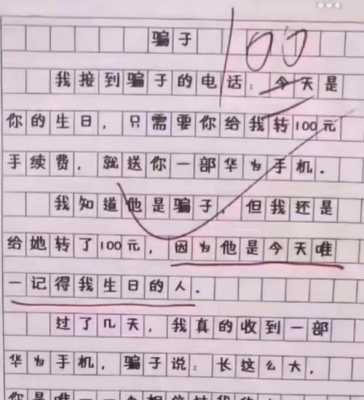 100
骗子
我接到骗子的电话：今天是
你的生日，只需要你给我转100元
手续费，就送你一部华为手机．
我知道他是骗子，但我还是
给她转了100元，因为他是今天唯
一记得我生日的人．
过了几天，我真的收到一部
华为手机，骗子说：长这么大，
你是唯一一个相信我